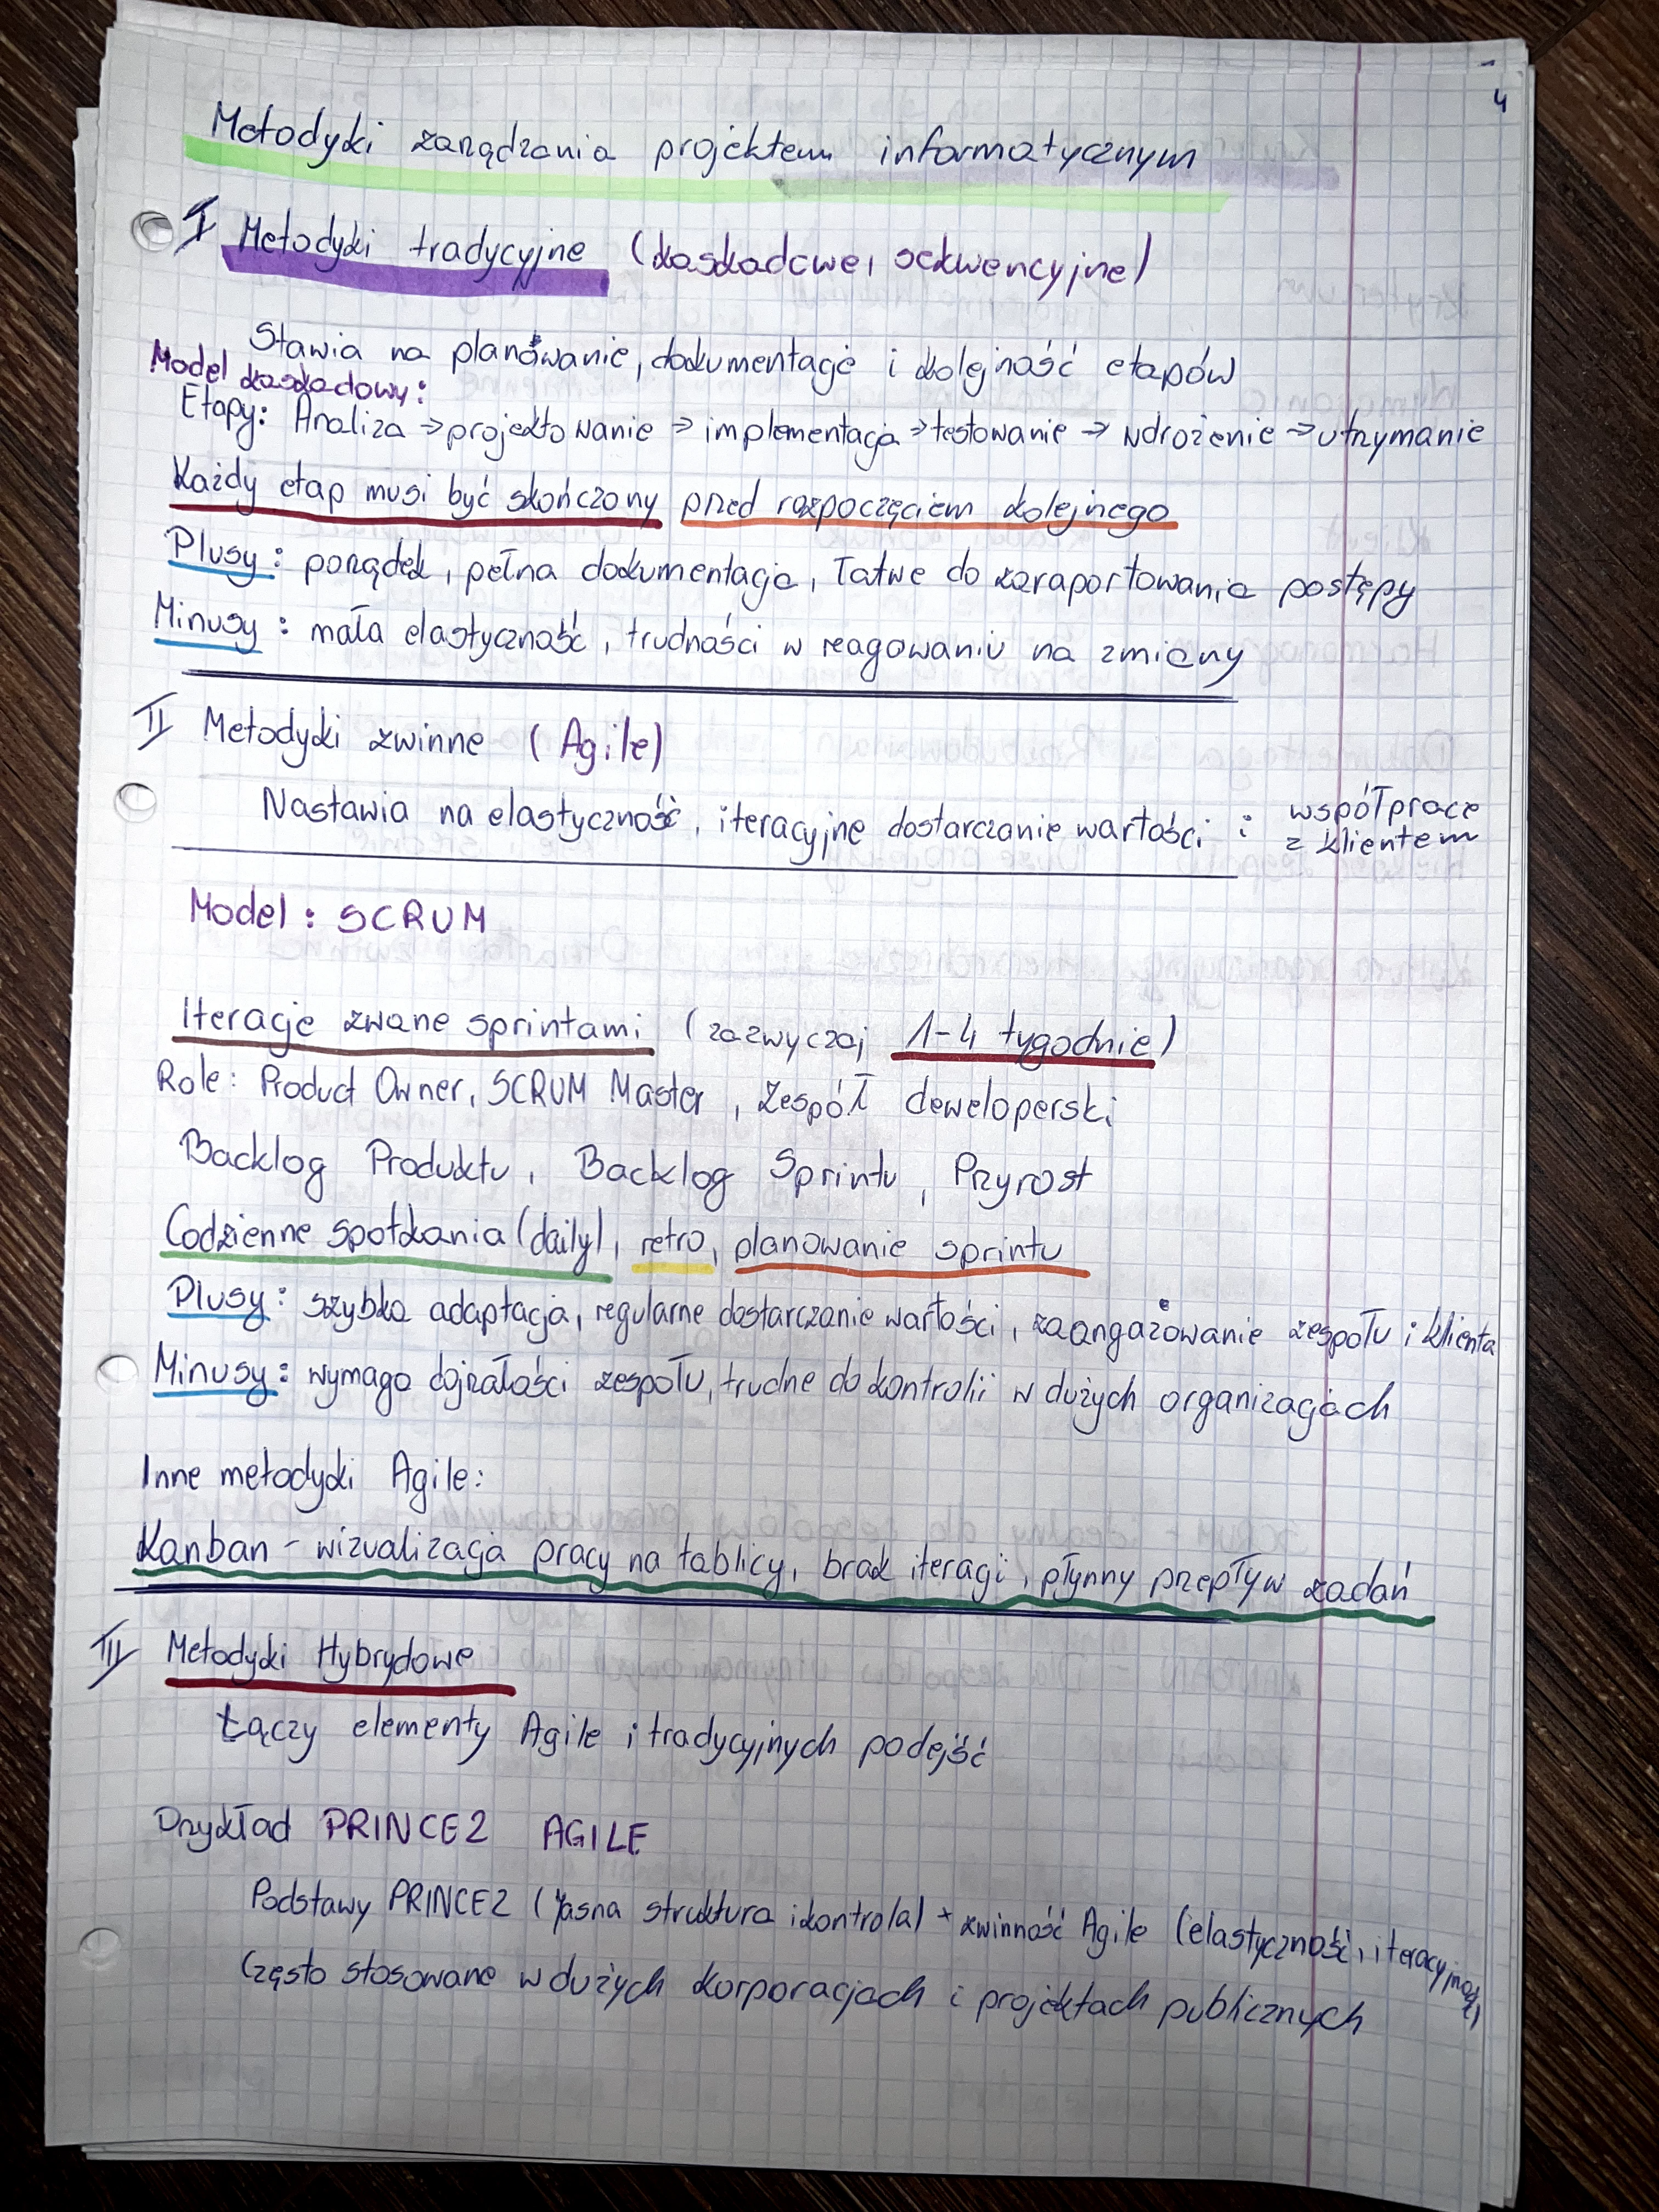 4
Metodyki zarządzania projektem informatycznym
I Metodyki tradycyjne (kaskadowe, sekwencyjne)
Stawia na planowanie, dokumentację i kolejność etapów
Model kaskadowy:
Etapy: Analiza → projektowanie → implementacja → testowanie → wdrożenie → utrzymanie
Każdy etap musi być skończony przed rozpoczęciem kolejnego
Plusy: porządek, pełna dokumentacja, łatwe do zaraportowania postępy
Minusy: mała elastyczność, trudności w reagowaniu na zmiany
II Metodyki zwinne (Agile)
Nastawia na elastyczność, iteracyjne dostarczanie wartości i współprace z klientem
Model: SCRUM
Iteracje zwane sprintami (zazwyczaj 1-4 tygodnie)
Role: Product Owner, SCRUM Master, Zespół deweloperski
Backlog Produktu, Backlog Sprintu, Przyrost
Codzienne spotkania (daily), retro, planowanie sprintu
Plusy: szybka adaptacja, regularne dostarczanie wartości, zaangażowanie zespołu i klienta
Minusy: wymaga dojrzałości zespołu, trudne do kontrolii w dużych organizacjach
Inne metodyki Agile:
Kanban - wizualizacja pracy na tablicy, brak iteracji, płynny przepływ zadań
III Metodyki Hybrydowe
Łączy elementy Agile i tradycyjnych podejść
Przykład PRINCE2 AGILE
Podstawy PRINCE2 (jasna struktura i kontrola) + zwinność Agile (elastyczność, iteracyjność)
Często stosowane w dużych korporacjach i projektach publicznych